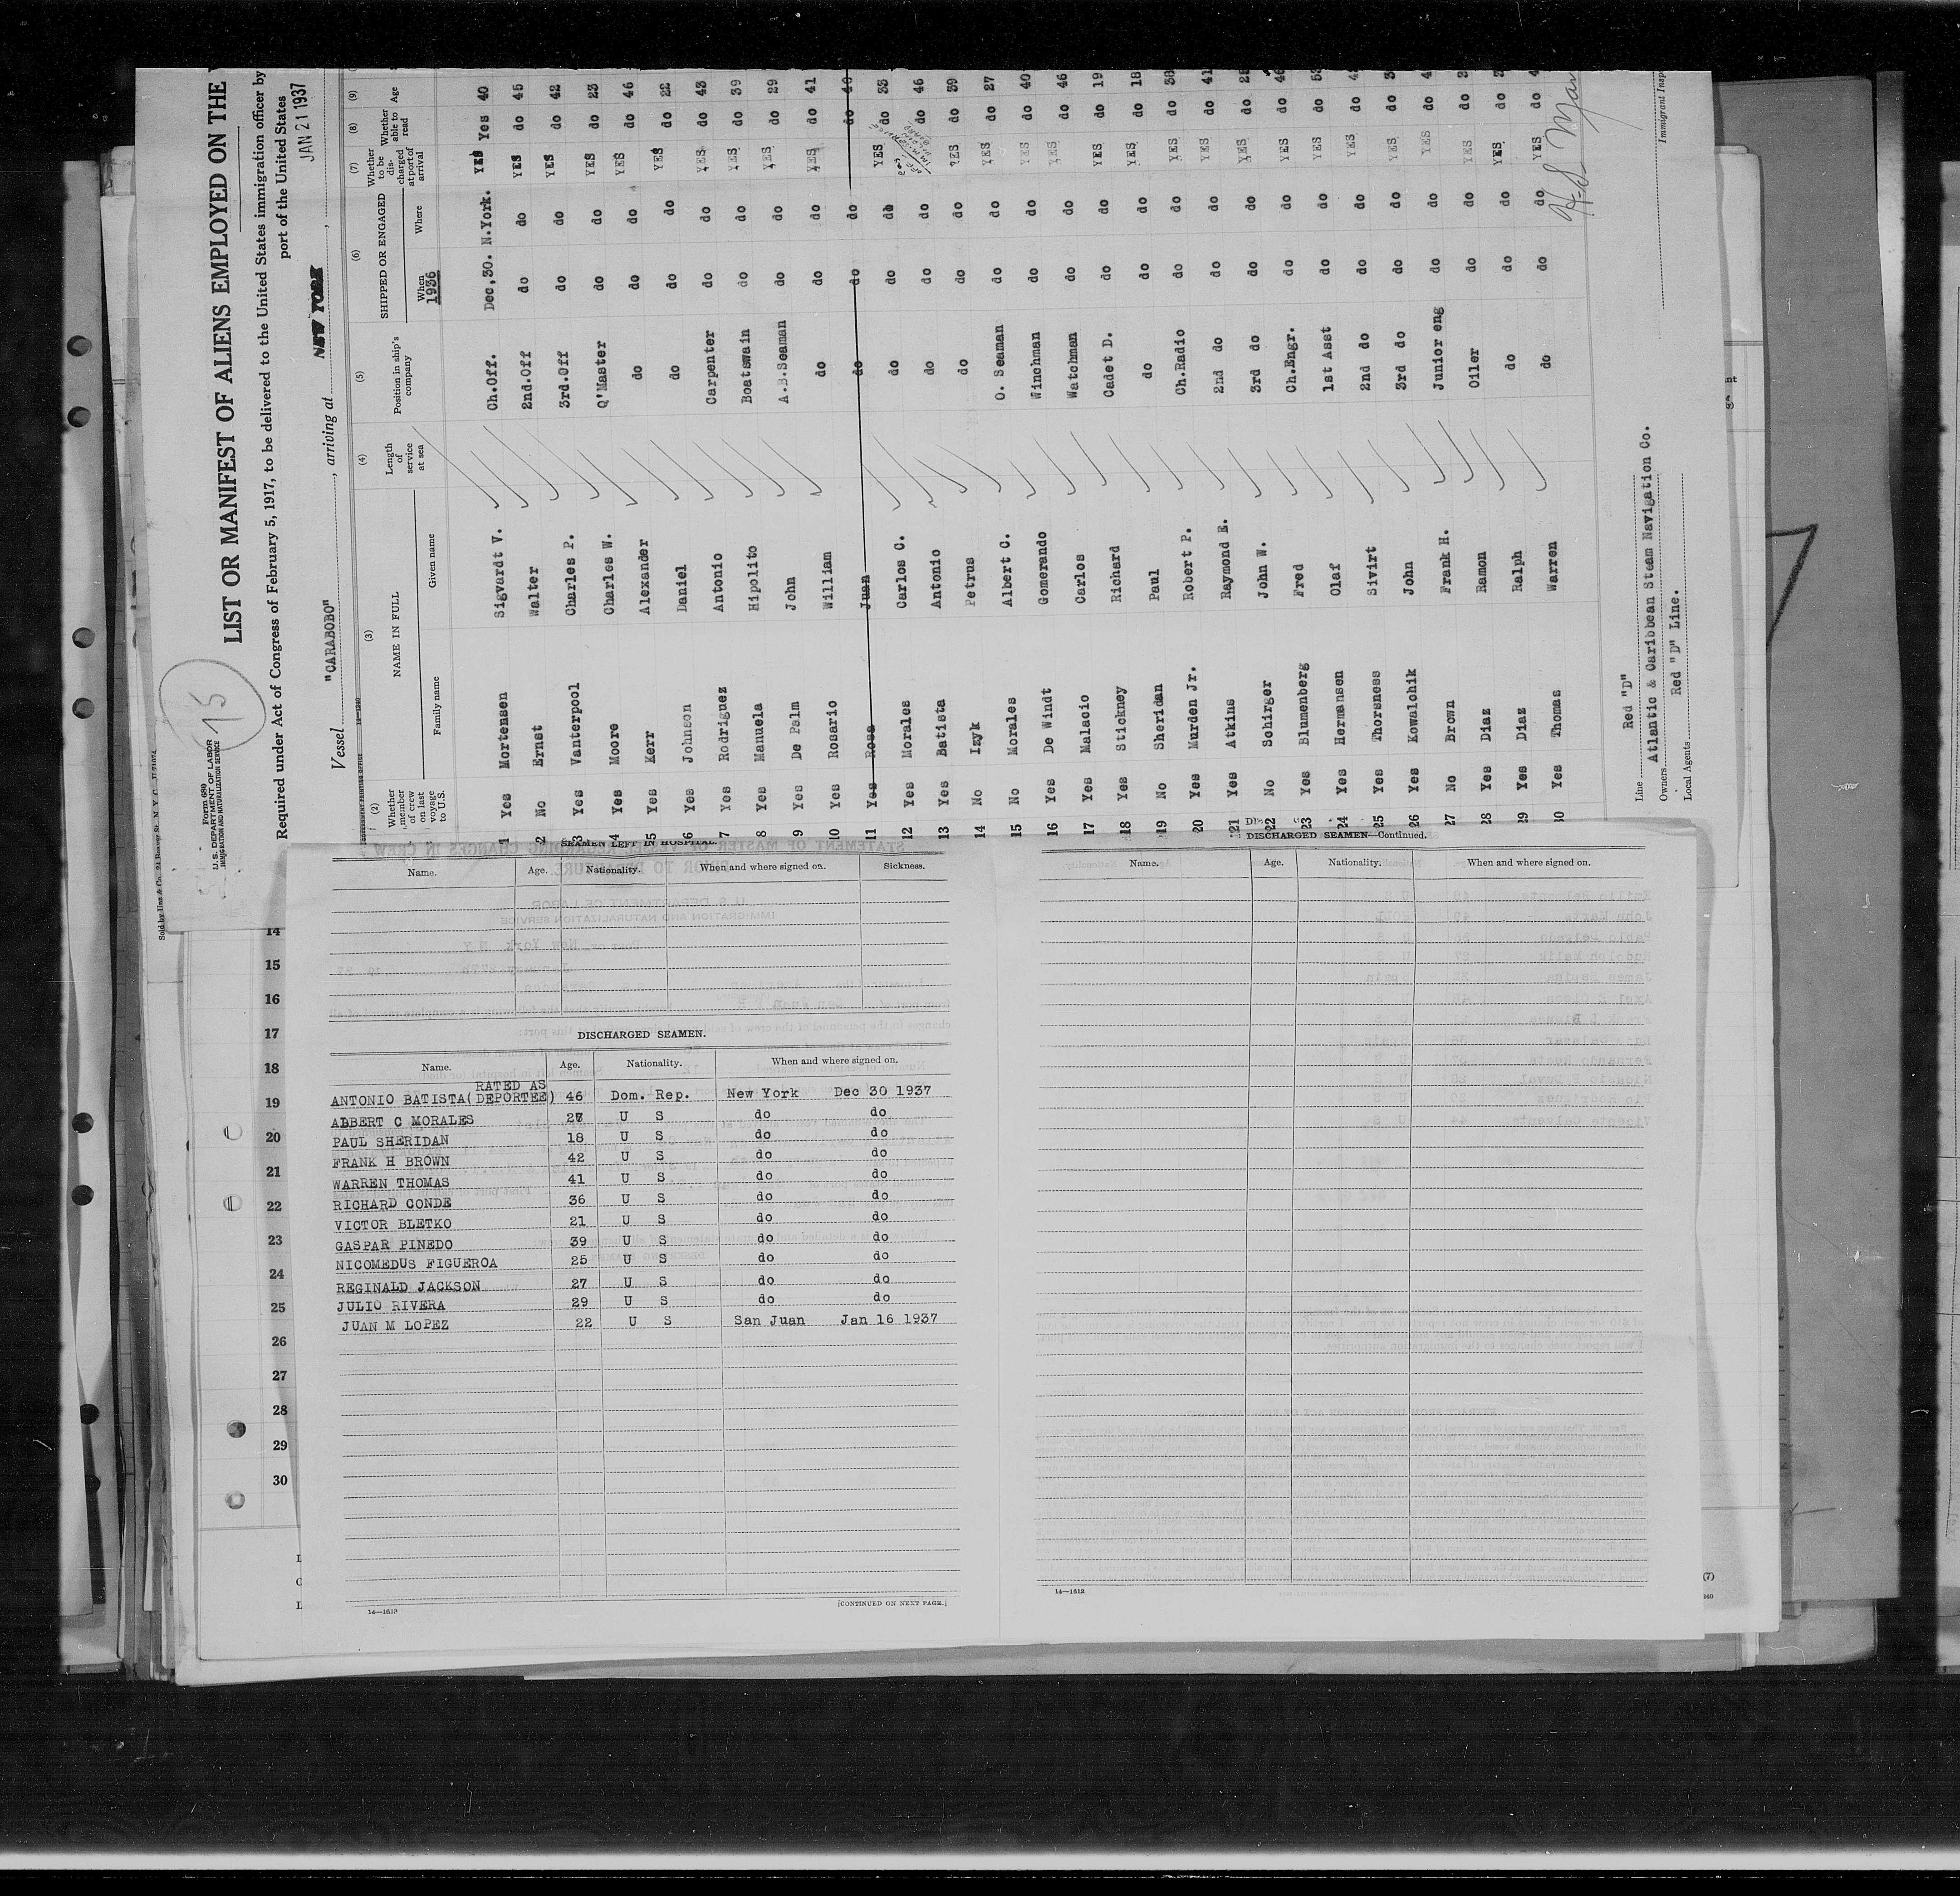 Form 689
U.S. DEPARTMENT OF LABOR
IMMIGRATION AND NATURALIZATION SERVICE
15
LIST OR MANIFEST OF ALIENS EMPLOYED ON THE
Required under Act of Congress of February 5, 1917, to be delivered to the United States immigration officer by
port of the United States
Vessel "CARABOBO", arriving at NEW YORK, JAN 21 1937
(2) (3) (4) (5) (6) (7) (8) (9)
Whether member of crew on last voyage to U.S. NAME IN FULL Family name Given name Length of service at sea Position in ship's company SHIPPED OR ENGAGED When 1936 Where Whether to be discharged at port of arrival Whether able to read Age
1 Yes Mortensen Sigvardt V. Ch.Off. Dec,30. N.York. YES Yes 40
2 No Ernst Walter 2nd.Off do do YES do 45
3 Yes Vanterpool Charles P. 3rd.Off do do YES do 42
4 Yes Moore Charles W. Q'Master do do YES do 23
5 Yes Kerr Alexander do do do YES do 46
6 Yes Johnson Daniel do do do YES do 22
7 Yes Rodriguez Antonio Carpenter do do YES do 43
8 Yes Manuela Hipolito Boatswain do do YES do 39
9 Yes De Palm John A.B.Seaman do do YES do 29
10 Yes Rosario William do do do YES do 41
11 Yes Rosa Juan do do do do 40
12 Yes Morales Carlos C. do do do YES do 33
13 Yes Batista Antonio do do do do 46
14 No Izyk Petrus do do do YES do 39
15 No Morales Albert C. O. Seaman do do YES do 27
16 Yes De Windt Gomerando Winchman do do YES do 40
17 Yes Malacio Carlos Watchman do do YES do 46
18 Yes Stickney Richard Cadet D. do do YES do 19
19 No Sheridan Paul do do do YES do 18
20 Yes Murden Jr. Robert P. Ch.Radio do do YES do 38
21 Yes Atkins Raymond E. 2nd do do do YES do 41
22 No Schirger John W. 3rd do do do YES do
23 Yes Blumenberg Fred Ch.Engr. do do YES do
24 Yes Hermansen Olaf 1st Asst do do YES do
25 Yes Thorsness Sivirt 2nd do do do YES do
26 Yes Kowalchik John 3rd do do do YES do
27 No Brown Frank H. Junior eng do do YES do
28 Yes Diaz Ramon Oiler do do YES do
29 Yes Diaz Ralph do do do YES do
30 Yes Thomas Warren do do do YES do
Line Red "D"
Owners Atlantic & Caribbean Steam Navigation Co.
Local Agents Red "D" Line.
Immigrant Insp
SEAMEN LEFT IN HOSPITAL.
Name. Age. Nationality. When and where signed on. Sickness.
14
15
16
17
18
19
20
21
22
23
24
25
26
27
28
29
30
DISCHARGED SEAMEN.
Name. Age. Nationality. When and where signed on.
RATED AS
ANTONIO BATISTA(DEPORTEE) 46 Dom. Rep. New York Dec 30 1937
ALBERT C MORALES 27 U S do do
PAUL SHERIDAN 18 U S do do
FRANK H BROWN 42 U S do do
WARREN THOMAS 41 U S do do
RICHARD CONDE 36 U S do do
VICTOR BLETKO 21 U S do do
GASPAR PINEDO 39 U S do do
NICOMEDUS FIGUEROA 25 U S do do
REGINALD JACKSON 27 U S do do
JULIO RIVERA 29 U S do do
JUAN M LOPEZ 22 U S San Juan Jan 16 1937
[CONTINUED ON NEXT PAGE.]
DISCHARGED SEAMEN—Continued.
Name. Age. Nationality. When and where signed on.
14—1612